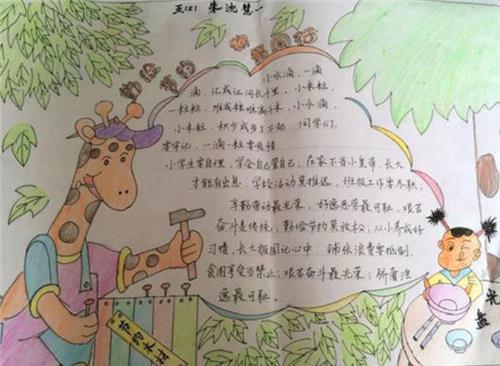 五(2) 朱沈慧一
勤俭节约 伴我同行
小水滴,一滴
滴,汇成江河长千里。小米粒,
一粒粒,堆成粮垛高千米。小水滴,
小米粒,积少成多了不起。同学们,
要牢记,一滴一粒要爱惜
小学生要自理,学会自己管自己,在家不当小皇帝,长大
才能有出息。学校活动莫推迟,班级工作要尽职。
辛勤劳动最光荣,好逸恶劳最可耻。艰苦
奋斗是传统,勤俭节约莫放松;从小养成好
习惯,长大报国记心中,铺张浪费要抵制,
贪图享受当禁止;艰苦奋斗最光荣;骄奢淫
逸最可耻。
节约木材
光
盘